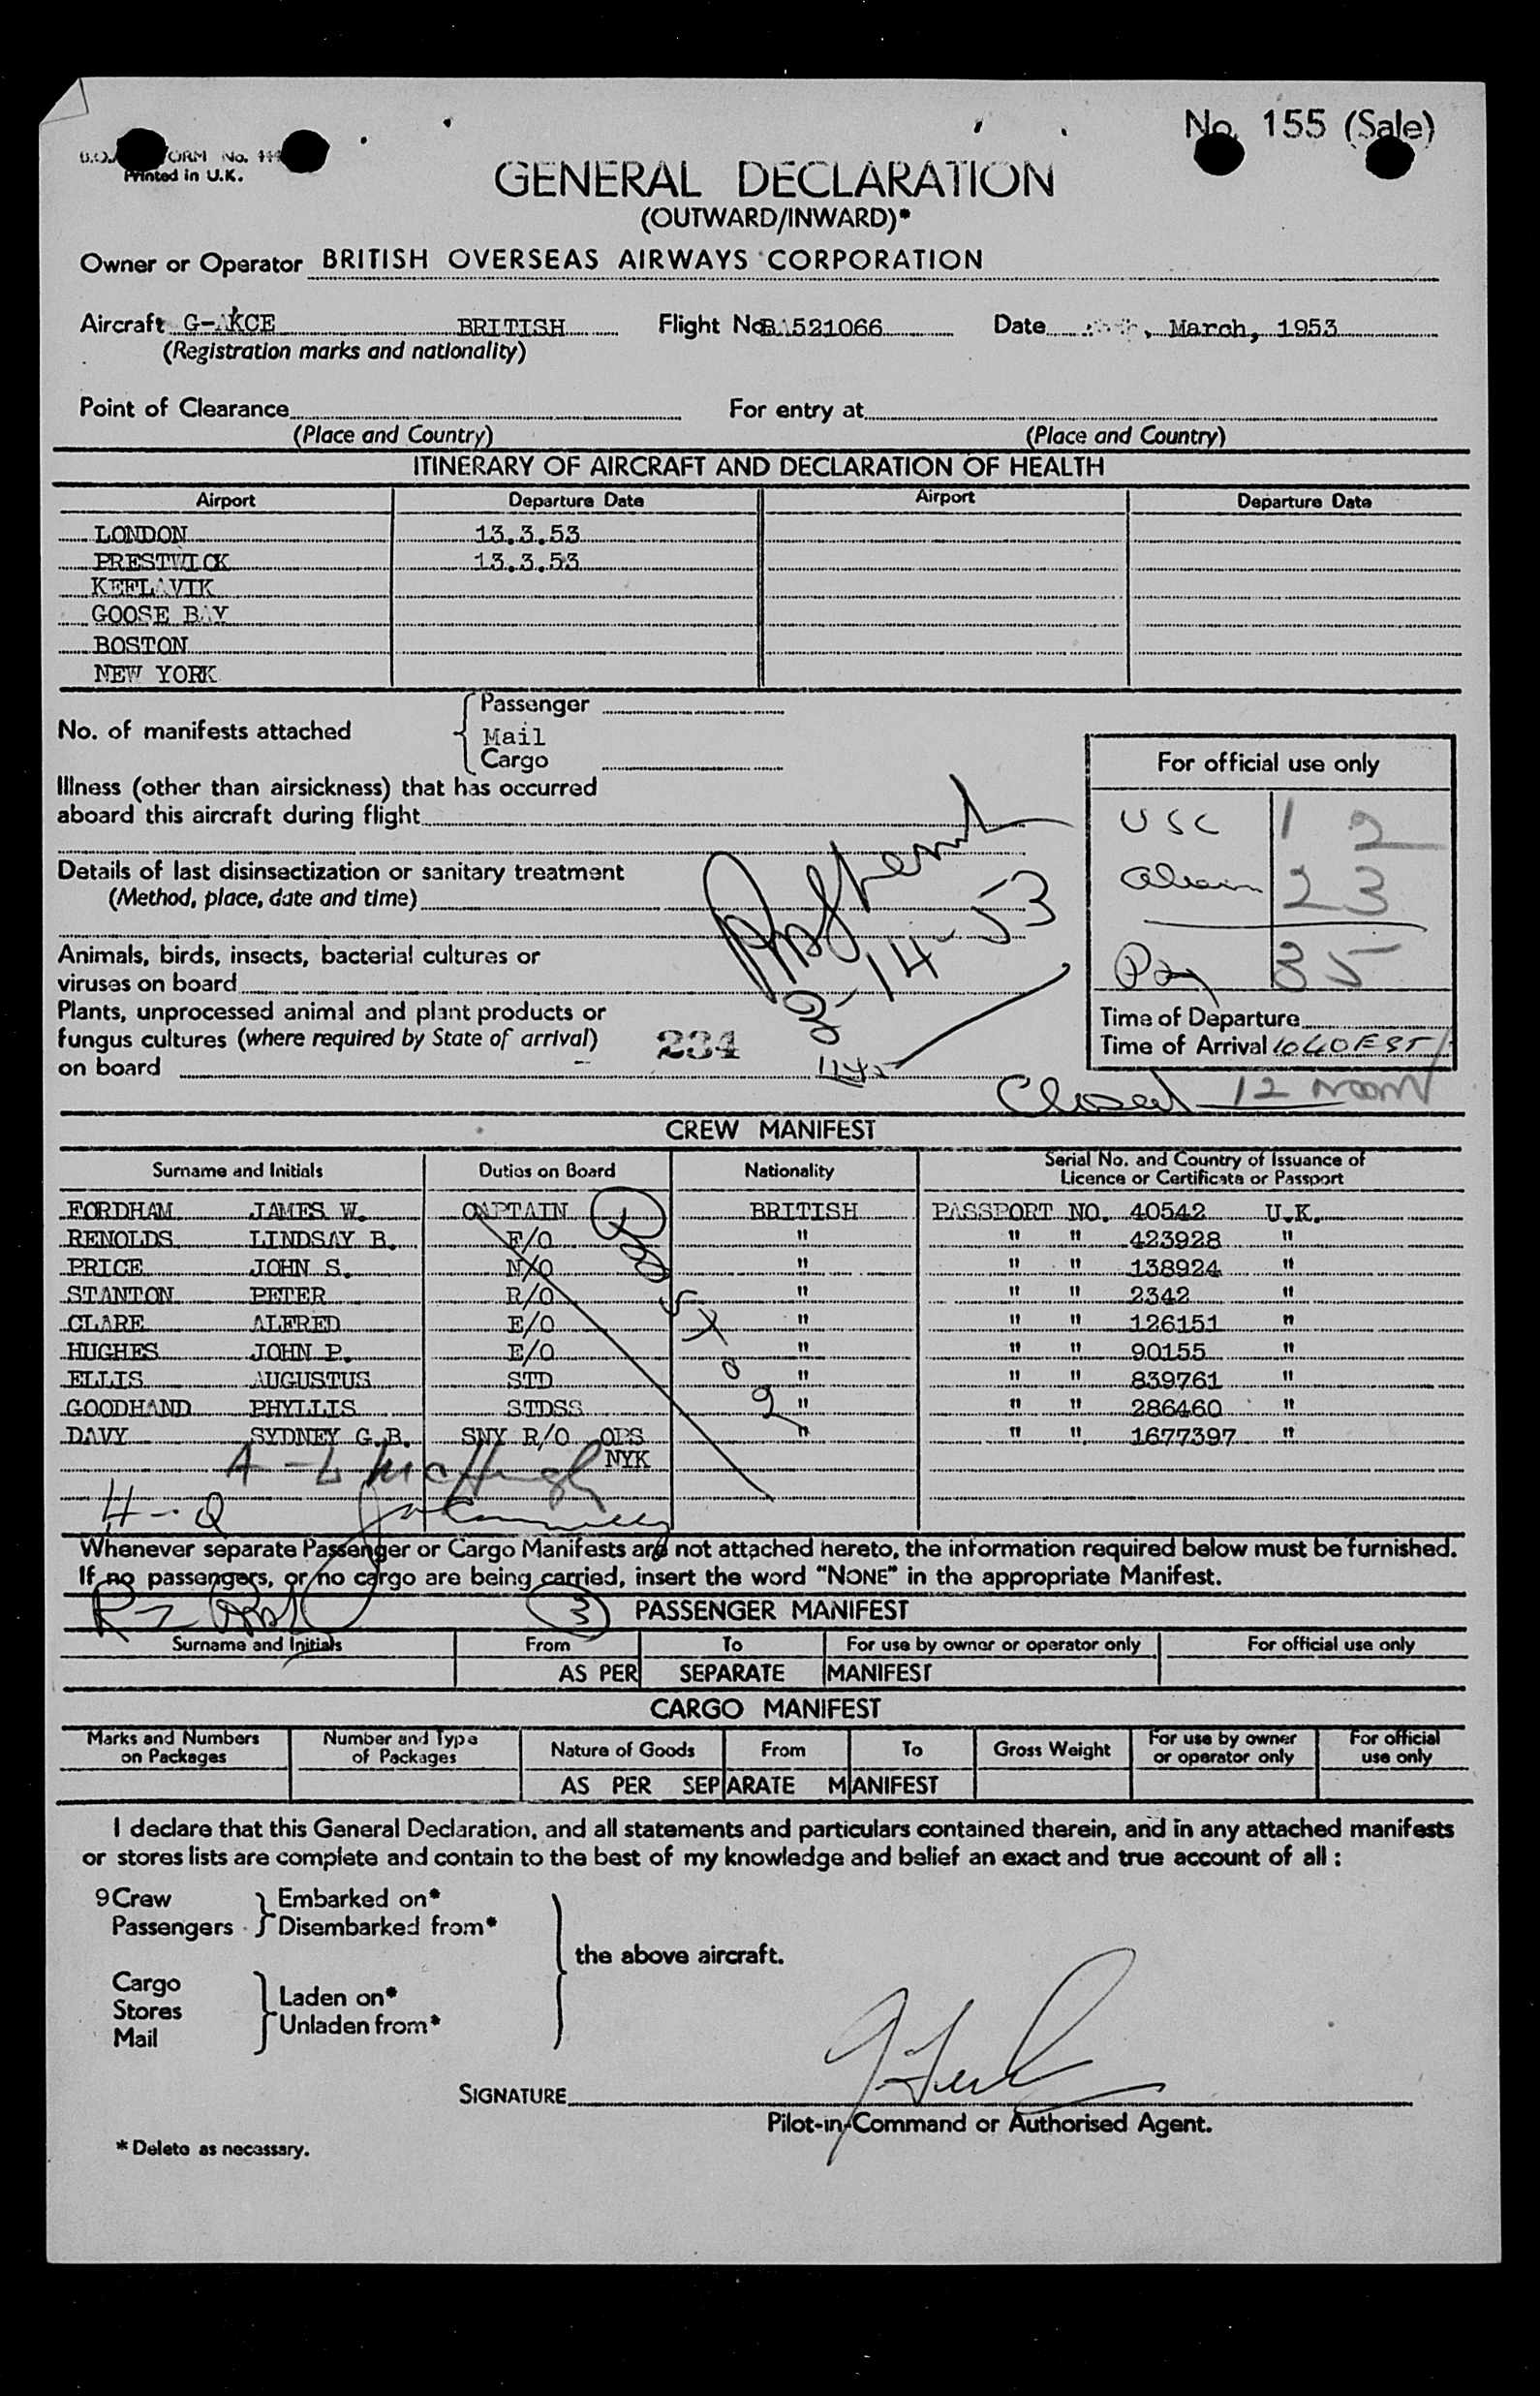 No. 155 (Sale)
Printed in U.K.
GENERAL DECLARATION
(OUTWARD/INWARD)*
Owner or Operator BRITISH OVERSEAS AIRWAYS CORPORATION
Aircraft G-AKCE BRITISH Flight No. BA521066 Date , March, 1953
(Registration marks and nationality)
Point of Clearance For entry at
(Place and Country) (Place and Country)
ITINERARY OF AIRCRAFT AND DECLARATION OF HEALTH
Airport Departure Date Airport Departure Date
LONDON 13.3.53
PRESTWICK 13.3.53
KEFLAVIK
GOOSE BAY
BOSTON
NEW YORK
No. of manifests attached
Passenger
Mail
Cargo
For official use only
USC 1 2
Alien 23
35
Time of Departure
Time of Arrival 1040 EST
Closed 12 noon
Illness (other than airsickness) that has occurred
aboard this aircraft during flight
Details of last disinsectization or sanitary treatment
(Method, place, date and time)
3-14-53
Animals, birds, insects, bacterial cultures or
viruses on board
Plants, unprocessed animal and plant products or
fungus cultures (where required by State of arrival)
on board
234
CREW MANIFEST
Surname and Initials Duties on Board Nationality Serial No. and Country of Issuance of
Licence or Certificate or Passport
FORDHAM JAMES W. CAPTAIN BRITISH PASSPORT NO. 40542 U.K.
RENOLDS LINDSAY B. F/O " " " 423928 "
PRICE JOHN S. N/O " " " 138924 "
STANTON PETER R/O " " " 2342 "
CLARE ALFRED E/O " " " 126151 "
HUGHES JOHN P. E/O " " " 90155 "
ELLIS AUGUSTUS STD " " " 839761 "
GOODHAND PHYLLIS STDSS " " " 286460 "
DAVY SYDNEY G.B. SNY R/O OPS " " " 1677397 "
NYK
Whenever separate Passenger or Cargo Manifests are not attached hereto, the information required below must be furnished.
If no passengers, or no cargo are being carried, insert the word "NONE" in the appropriate Manifest.
3
PASSENGER MANIFEST
Surname and Initials From To For use by owner or operator only For official use only
AS PER SEPARATE MANIFEST
CARGO MANIFEST
Marks and Numbers on Packages Number and Type of Packages Nature of Goods From To Gross Weight For use by owner or operator only For official use only
AS PER SEPARATE MANIFEST
I declare that this General Declaration, and all statements and particulars contained therein, and in any attached manifests
or stores lists are complete and contain to the best of my knowledge and belief an exact and true account of all :
9 Crew Embarked on*
Passengers Disembarked from*
the above aircraft.
Cargo
Stores Laden on*
Mail Unladen from*
SIGNATURE
Pilot-in-Command or Authorised Agent.
* Delete as necessary.